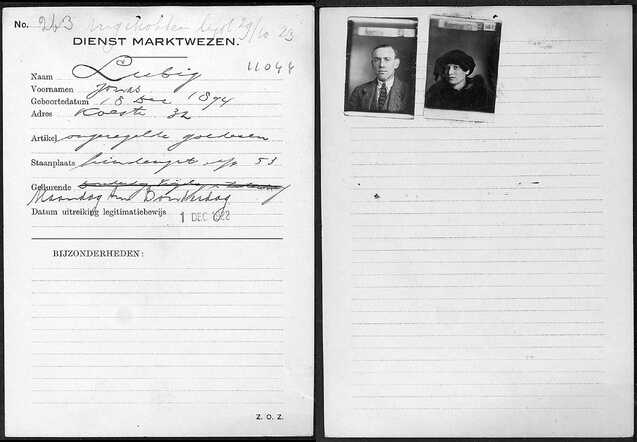 No. 263 Ingetrokken 29/10 23
DIENST MARKTWEZEN.
11044
Naam Lubig
Voornamen Jonas
Geboortedatum 18 Dec 1894
Adres 32
Artikel ongeregelde goederen
Staanplaats 53
Gedurende
Maandag en Donderdag
Datum uitreiking legitimatiebewijs 1 DEC 1922
BIJZONDERHEDEN:
Z. O. Z.